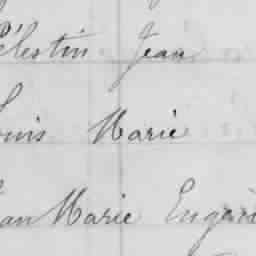 Célestin Jean
Louis Marie
Jean Marie Eugène